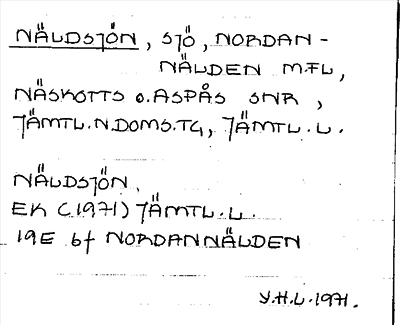 NÄLDSJÖN, SJÖ, NORDAN-
NÄLDEN M.FL,
NÄSKOTTS o. ASPÅS SNR,
JÄMTL.N.DOMS.TG, JÄMTL.L.
NÄLDSJÖN,
EK (1971) JÄMTL.L.
19E 6f NORDANNÄLDEN
Y.H.L.1971.